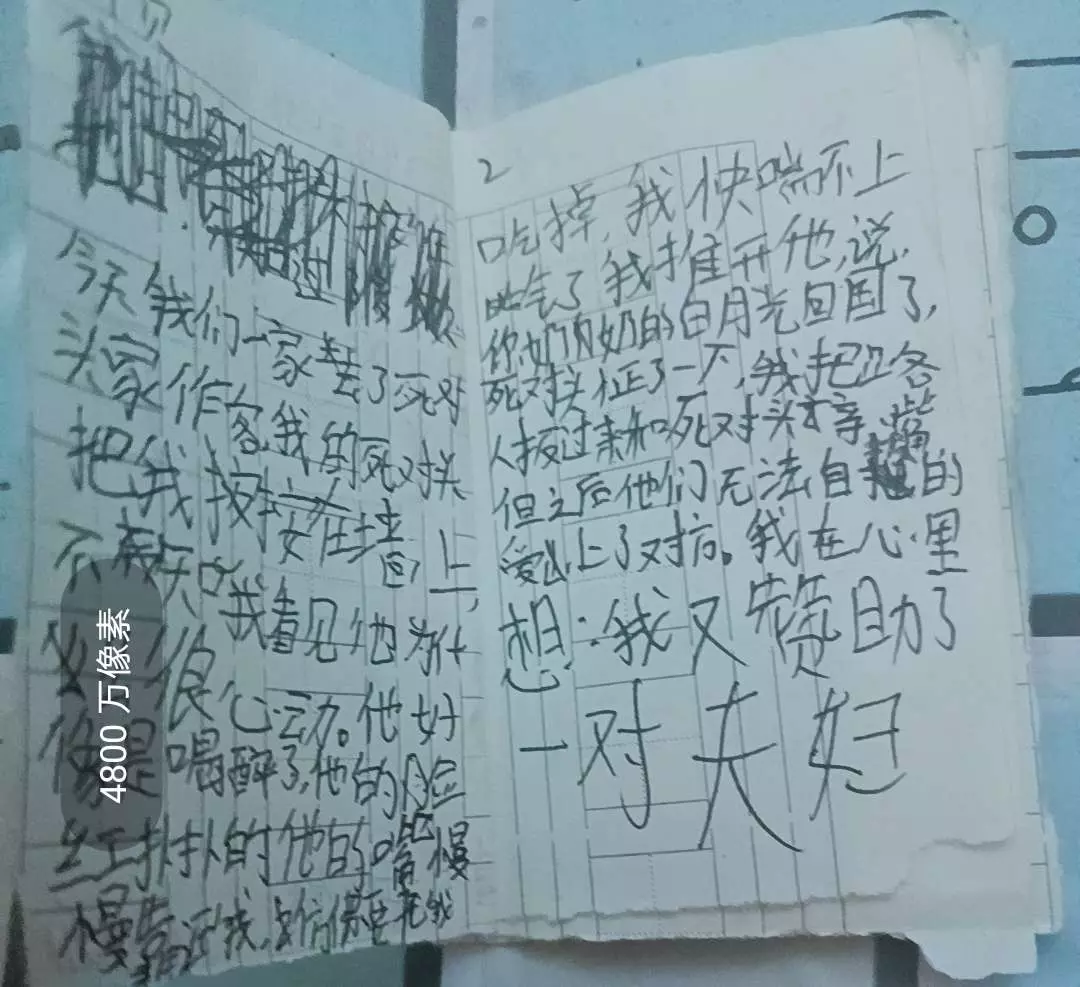 今天我们一家去了死对
头家作客,我的死对头
把我按在墙上,
不知 我看见他为什
么很心动。他好
像是喝醉了,他的脸
红扑扑的他的嘴慢
慢靠近我,好像要把我
2
吃掉,我快喘不上
气了我推开他,说,
你奶奶的白月光回国了,
死对头征了一下,我把
人扳过来和死对头亲嘴
但之后他们无法自 的
爱上了对方。我在心里
想:我又赞助了
一对夫妇
4800 万像素